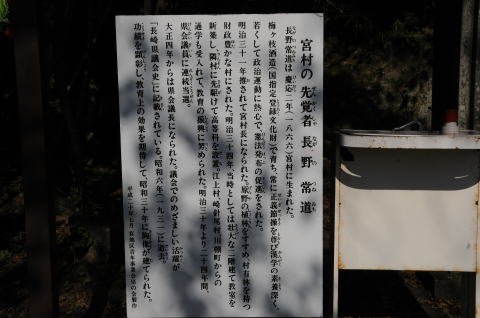 宮村の先覚者 長野 常道
長野常道は慶応二年(一八六六)宮村に生まれた。
梅ヶ枝酒造(国指定登録文化財)で育ち、常に正義節操を尊び漢学の素養深く、
若くして政治運動に熱心で、憲法発布の促進をされた。
明治三十一年推されて宮村長になられた。原野の植林をすすめ、村有林を持つ
財政豊かな村にされた。明治三十四年、当時としては壮大な二階建て教室を
新築し、隣村に先駆けて高等科を設置、江上村、崎針尾村、川棚町からの
通学も受入れて、教育の振興に努められた。明治三十年より二十四年間、
県会議員に連続当選。
大正四年からは県会議長になられた。議会でのめざましい活躍が
「長崎県議会史」に記載されている。昭和六年(一九三一)に逝去。
功績を顕彰し、教育上の効果を期待して、昭和三十年に胸像が建てられた。
平成二十年七月 宮地区青年事業委員の会製作